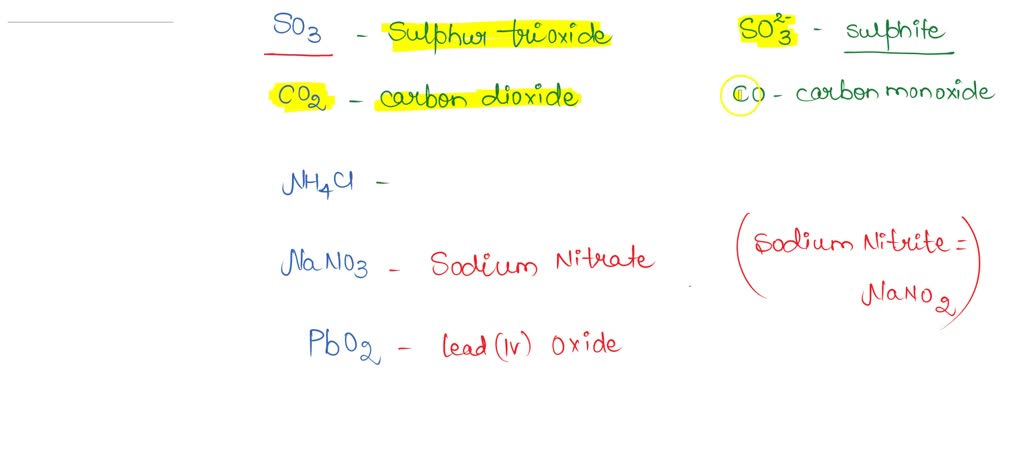 SO₃ - Sulphur trioxide SO₃²⁻ - sulphite
CO₂ - carbon dioxide CO - carbon monoxide
NH₄Cl -
NaNO₃ - Sodium Nitrate (Sodium Nitrite =
NaNO₂)
PbO₂ - lead (IV) Oxide